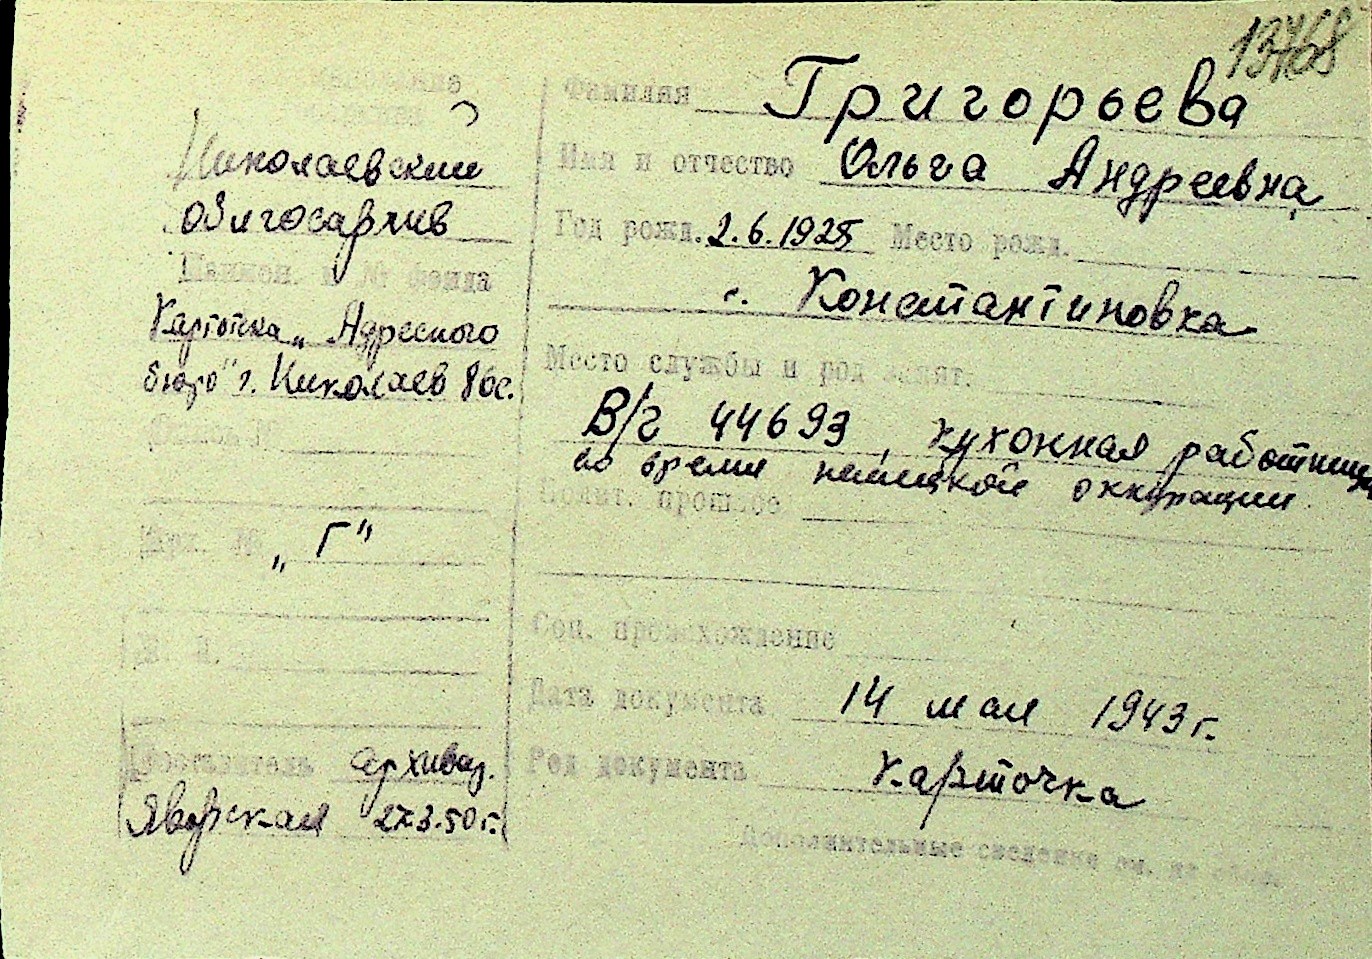 13768
Название
архива
Николаевский
облгосархив
Наимен. и № фонда
Картотка „Адресного
бюро" г. Николаев 86с.
Опись №
Арх. № „Г"
Л. л.
Составитель архивар.
Яворская 27.3.50 г.
Фамилия Григорьева
Имя и отчество Ольга Андреевна
Год рожд. 2.6.1925 Место рожд.
с. Константиновка
Место службы и род занят.
В/г 44693, кухонная работница
во время немецкой оккупации
Полит. прошлое
Соц. происхождение
Дата документа 14 мая 1943 г.
Род документа карточка
Дополнительные сведения см. на обор.